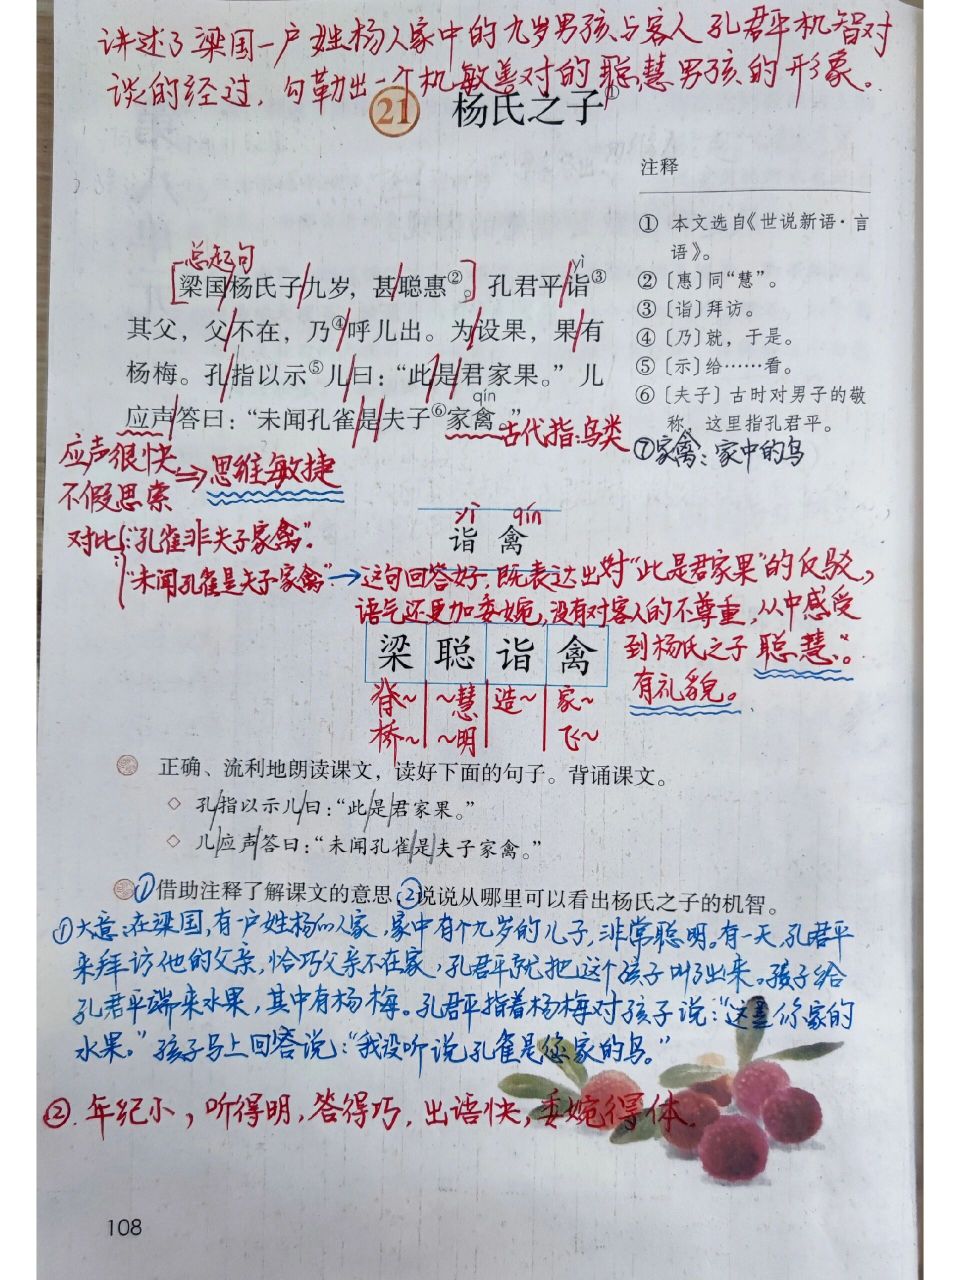 讲述了梁国一户姓杨人家中的九岁男孩与客人孔君平机智对
谈的经过，勾勒出一个机敏善对的聪慧男孩的形象。
21 杨氏之子①
注释
① 本文选自《世说新语·言
语》。
②〔惠〕同“慧”。
③〔诣〕拜访。
④〔乃〕就，于是。
⑤〔示〕给……看。
⑥〔夫子〕古时对男子的敬
称，这里指孔君平。
⑦家禽：家中的鸟
总起句
yì
梁国/杨氏子/九岁，甚/聪惠②。孔君平/诣③
其父，父/不在，乃④/呼儿出。为/设果，果/有
杨梅。孔/指以示⑤儿/曰：“此/是/君家果。”儿
qín
应声/答曰：“未闻孔雀/是/夫子⑥家禽。”
古代指鸟类
应声很快，
不假思索
⇒思维敏捷
对比：“孔雀非夫子家禽”。
“未闻孔雀是夫子家禽”→这句回答好.既表达出对“此是君家果”的反驳，
语气还更加委婉，没有对客人的不尊重，从中感受
到杨氏之子聪慧、
有礼貌。
yì qín
诣 禽
梁 聪 诣 禽
脊~ ~慧 造~ 家~
桥~ ~明 飞~
正确、流利地朗读课文，读好下面的句子。背诵课文。
◇ 孔/指以示儿/曰：“此/是/君家果。”
◇ 儿/应声/答曰：“未闻孔雀/是/夫子家禽。”
①借助注释了解课文的意思，②说说从哪里可以看出杨氏之子的机智。
①大意：在梁国，有一户姓杨的人家，家中有个九岁的儿子，非常聪明。有一天，孔君平
来拜访他的父亲，恰巧父亲不在家，孔君平就把这个孩子叫了出来。孩子给
孔君平端来水果，其中有杨梅。孔君平指着杨梅对孩子说：“这是你家的
水果。”孩子马上回答说：“我没听说孔雀是您家的鸟。”
②.年纪小，听得明，答得巧，出语快，委婉得体.
108